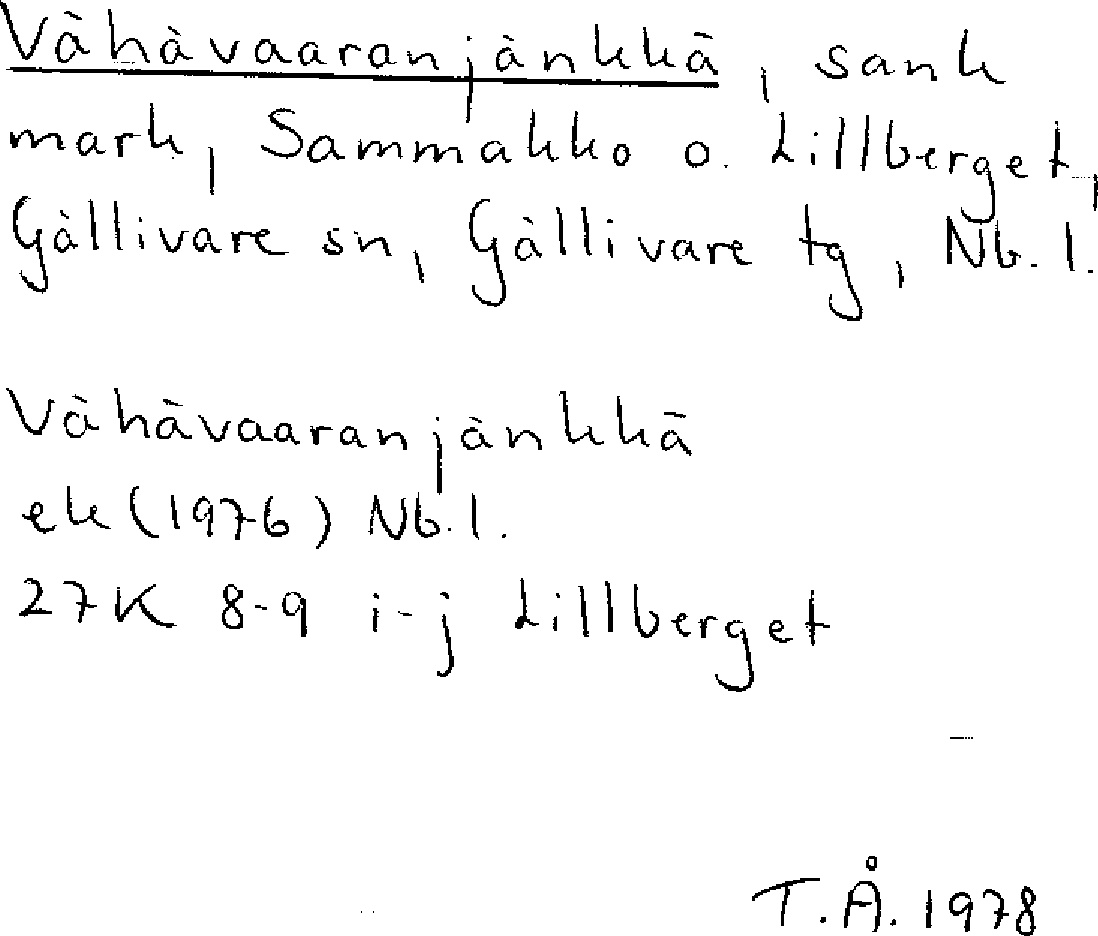 Vähävaaranjänkkä, sank
mark, Sammakko o. Lillberget,
Gällivare sn, Gällivare tg, Nb. l.
Vähävaaranjänkkä
ek (1976) Nb. l.
27K 8-9 i-j Lillberget
T.Å. 1978